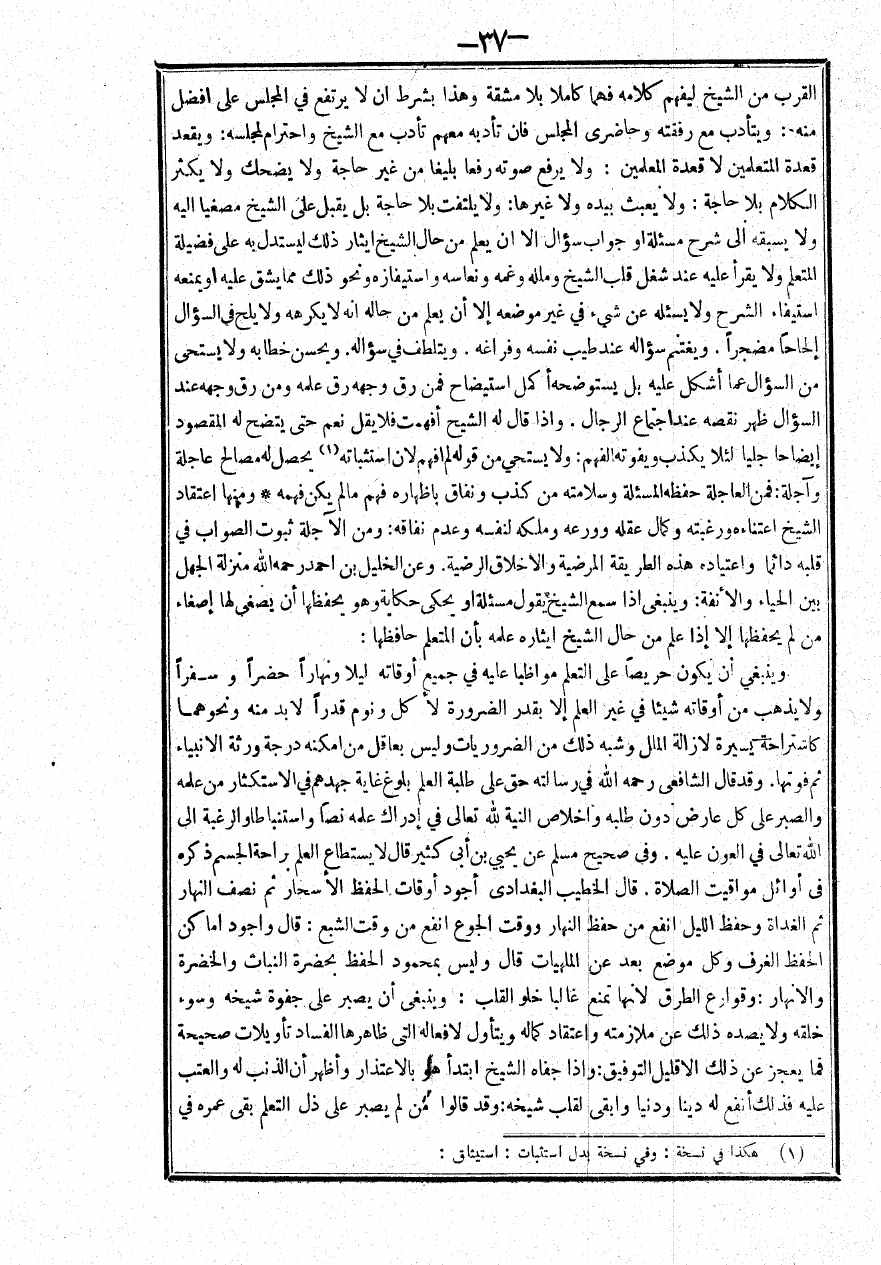 —٣٧—
القرب من الشيخ ليفهم كلامه فهما كاملا بلا مشقة وهذا بشرط ان لا يرتفع في المجلس على افضل
منه: ويتأدب مع رفقته وحاضرى المجلس فان تأدبه معهم تأدب مع الشيخ واحترام لمجلسه: ويقعد
قعدة المتعلمين لا قعدة المعلمين : ولا يرفع صوته رفعا بليغا من غير حاجة ولا يضحك ولا يكثر
الكلام بلا حاجة : ولا يعبث بيده ولا غيرها: ولا يلتفت بلا حاجة بل يقبل على الشيخ مصغيا اليه
ولا يسبقه الى شرح مسئلة او جواب سؤال الا ان يعلم من حال الشيخ ايثار ذلك ليستدل به على فضيلة
المتعلم ولا يقرأ عليه عند شغل قلب الشيخ وملله وغمه ونعاسه واستيفازه ونحو ذلك مما يشق عليه او يمنعه
استيفاء الشرح ولا يسئله عن شيء في غير موضعه إلا أن يعلم من حاله انه لا يكرهه ولا يلح في السؤال
إلحاحاً مضجراً . ويغتنم سؤاله عند طيب نفسه وفراغه . ويتلطف في سؤاله. ويحسن خطابه ولا يستحى
من السؤال عما أشكل عليه بل يستوضحه أكمل استيضاح فمن رق وجهه رق علمه ومن رق وجهه عند
السؤال ظهر نقصه عند اجتماع الرجال . واذا قال له الشيخ أفهمت فلا يقل نعم حتى يتضح له المقصود
إيضاحا جليا لئلا يكذب ويفوته الفهم: ولا يستحي من قوله لم افهم لان استثباته (١) يحصل له مصالح عاجلة
وآجلة: فمن العاجلة حفظه المسئلة وسلامته من كذب ونفاق باظهاره فهم مالم يكن فهمه * ومنها اعتقاد
الشيخ اعتناءه ورغبته وكمال عقله وورعه وملكه لنفسه وعدم نفاقه: ومن الآجلة ثبوت الصواب في
قلبه دائما واعتياده هذه الطريقة المرضية والاخلاق الرضية. وعن الخليل بن احمد رحمه الله منزلة الجهل
بين الحياء والأنفة: وينبغى اذا سمع الشيخ يقول مسئلة او يحكى حكاية وهو يحفظها أن يصغي لها إصغاء
من لم يحفظها إلا إذا علم من حال الشيخ ايثاره علمه بأن المتعلم حافظها :
وينبغي أن يكون حريصاً على التعلم مواظبا عليه في جميع أوقاته ليلا ونهاراً حضراً و سفراً
ولا يذهب من أوقاته شيئا في غير العلم إلا بقدر الضرورة لأكل ونوم قدراً لا بد منه ونحوهما
كاستراحة يسيرة لازالة الملل وشبه ذلك من الضروريات وليس بعاقل من امكنه درجة ورثة الانبياء
ثم فوتها. وقد قال الشافعى رحمه الله في رسالته حق على طلبة العلم بلوغ غاية جهدهم في الاستكثار من علمه
والصبر على كل عارض دون طلبه واخلاص النية لله تعالى في إدراك علمه نصا واستنباطا والرغبة الى
الله تعالى في العون عليه . وفى صحيح مسلم عن يحيي بن أبى كثير قال لا يستطاع العلم براحة الجسم ذكره
فى أوائل مواقيت الصلاة . قال الخطيب البغدادى أجود أوقات الحفظ الأسحار ثم نصف النهار
ثم الغداة وحفظ الليل انفع من حفظ النهار ووقت الجوع انفع من وقت الشبع : قال واجود اماكن
الحفظ الغرف وكل موضع بعد عن الملهيات قال وليس بمحمود الحفظ بحضرة النبات والخضرة
والانهار :وقوارع الطرق لانها تمنع غالبا خلو القلب : وينبغى أن يصبر على جفوة شيخه وسوء
خلقه ولا يصده ذلك عن ملازمته واعتقاد كماله ويتأول لافعاله التى ظاهرها الفساد تأويلات صحيحة
فما يعجز عن ذلك الا قليل التوفيق: واذا جفاه الشيخ ابتدأ هو بالاعتذار وأظهر أن الذنب له والعتب
عليه فذلك أنفع له دينا ودنيا وابقى لقلب شيخه: وقد قالوا من لم يصبر على ذل التعلم بقى عمره في
(١) هكذا في نسخة : وفي نسخة بدل استثبات : استيثاق :